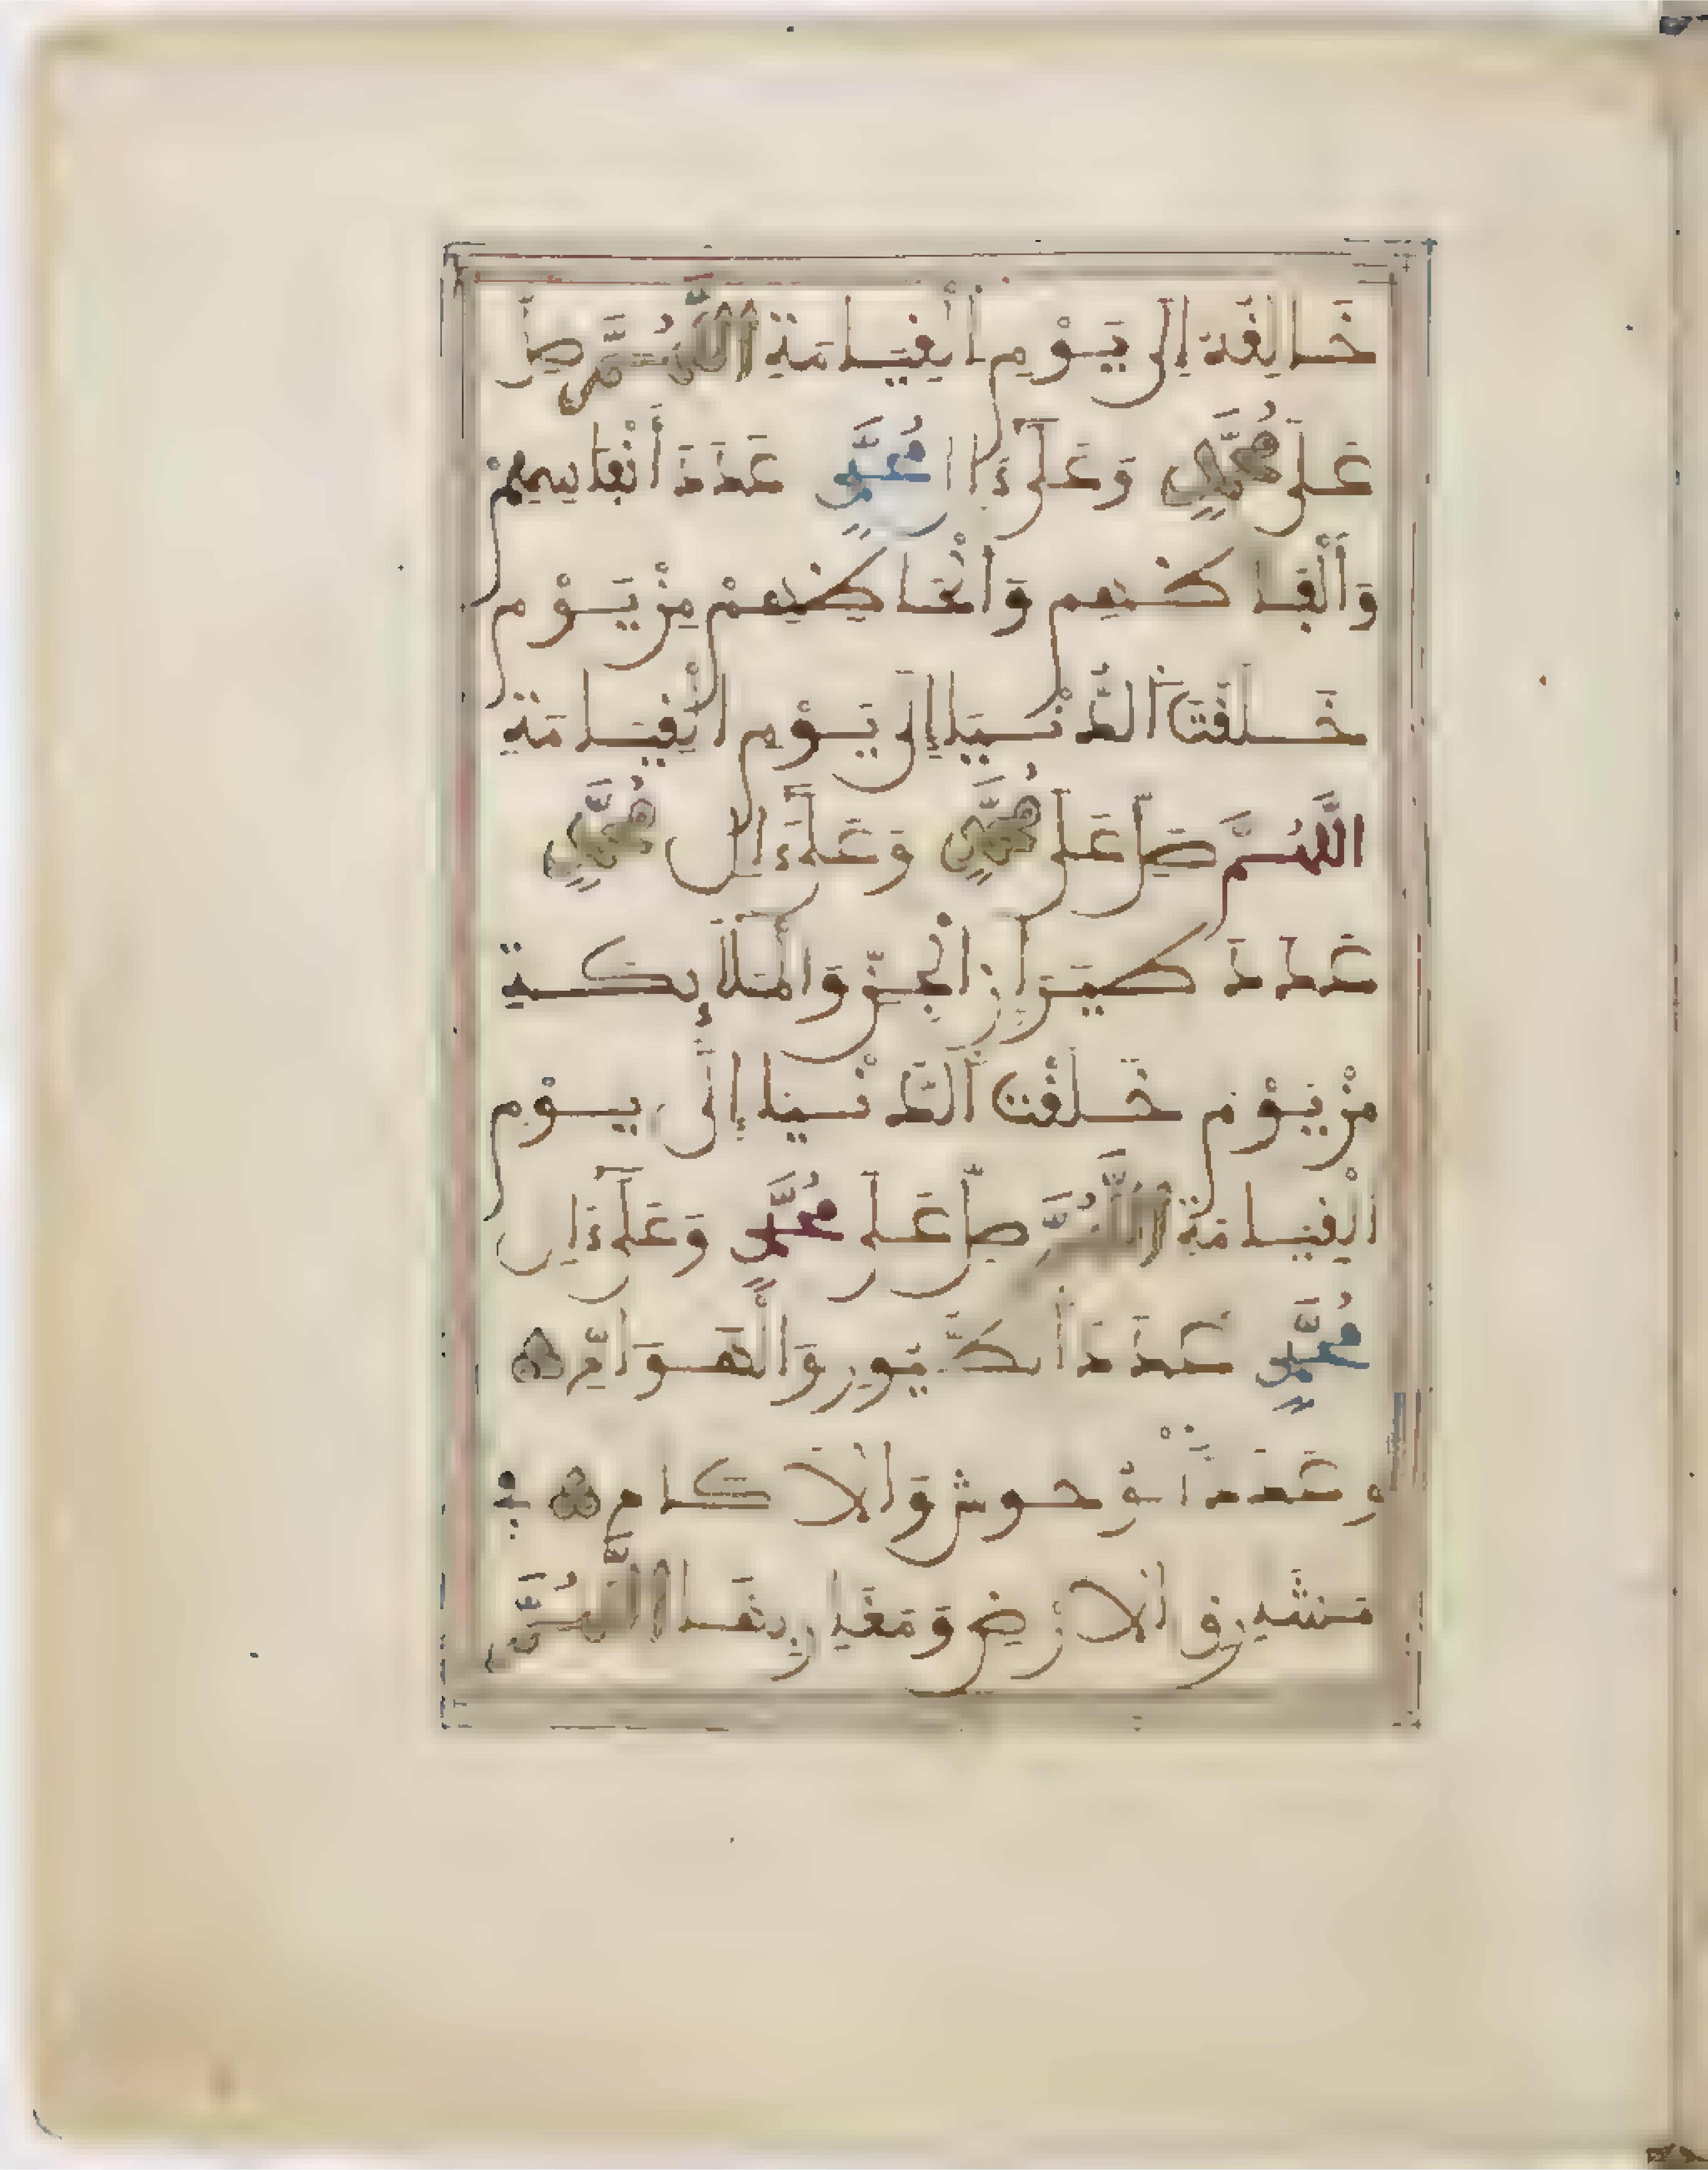 خَالِفَةٍ إِلَى يَوْمِ الْقِيَامَةِ اللَّهُمَّ صَلِّ
عَلَى مُحَمَّدٍ وَعَلَى ءَالِ مُحَمَّدٍ عَدَدَ أَنْفَاسِهِمْ
وَأَلْفَاظِهِمْ وَأَلْحَاظِهِمْ مِنْ يَوْمِ
خَلَقْتَ الدُّنْيَا إِلَى يَوْمِ الْقِيَامَةِ
اللَّهُمَّ صَلِّ عَلَى مُحَمَّدٍ وَعَلَى ءَالِ مُحَمَّدٍ
عَدَدَ طَيَرَانِ الْجِنِّ وَالْمَلَائِكَةِ
مِنْ يَوْمِ خَلَقْتَ الدُّنْيَا إِلَى يَوْمِ
الْقِيَامَةِ اللَّهُمَّ صَلِّ عَلَى مُحَمَّدٍ وَعَلَى ءَالِ
مُحَمَّدٍ عَدَدَ الطُّيُورِ وَالْهَوَامِّ
وَعَدَدَ الْوُحُوشِ وَالْآكَامِ فِي
مَشَارِقِ الْأَرْضِ وَمَغَارِبِهَا اللَّهُمَّ